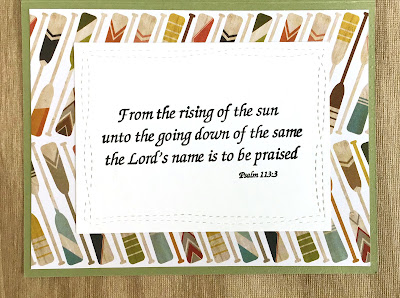 From the rising of the sun
unto the going down of the same
the Lord's name is to be praised
Psalm 113:3